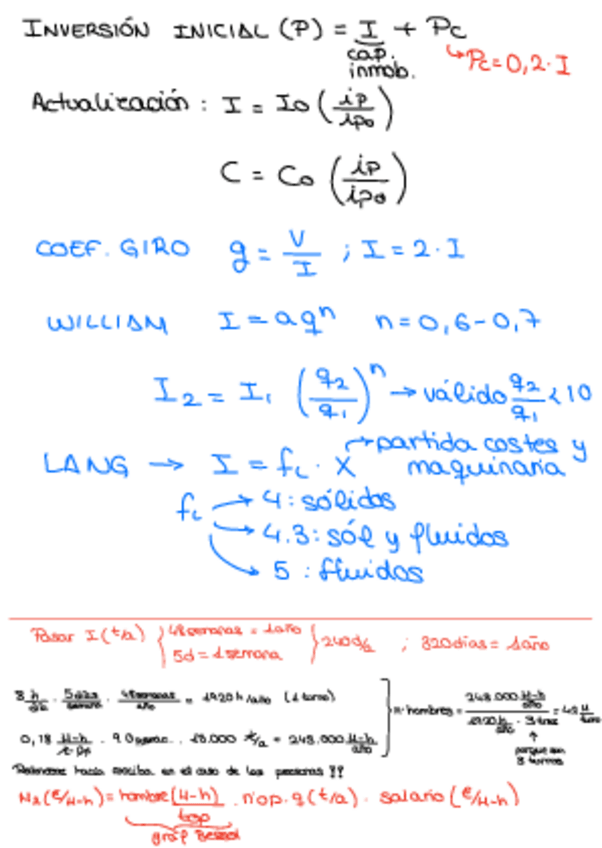 INVERSIÓN INICIAL (P) = I + Pc
cap. inmob.
↳ Pc = 0,2 · I
Actualización : I = Io (ip/ipo)
C = Co (ip/ipo)
COEF. GIRO g = V/I ; I = 2 · I
WILLIAM I = aqⁿ n = 0,6 - 0,7
I₂ = I₁ (q₂/q₁)ⁿ → válido q₂/q₁ < 10
LANG → I = fL · X → partida costes y maquinaria
fL → 4 : sólidos
→ 4.3 : sól y fluidos
→ 5 : fluidos
Pasar I (t/a) } 48 semanas = 1 año
5d = 1 semana } 240 d/a ; 320 días = 1 año
8 h/día · 5 días/semana · 48 semanas/año = 1920 h/año (1 turno)
0,18 · = 248.000 H-h/año
nº hombres = 248.000 H-h/año / 1920 h/año · 3 = 42 H/turno
↑ porque son 3 turnos
hacia arriba en el caso de las personas !!
(€/H-h) = hombre (H-h) / top · nºop · q (t/a) · salario (€/H-h)
gráf Wessel